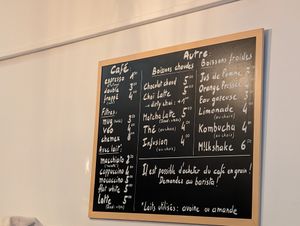 Café
espresso
double
frappé
Filtres:
mug
V60
chemex
Avec lait:
macchiato
cappuccino 4
mocaccino 5
flat white 5
latte
Autre:
Boissons chaudes
Chocolat chaud 5
Chai Latte 5
→ dirty chai: +1
Matcha Latte 5
Thé (au choix) 4
Infusion 4
(au choix)
Boissons froides
Jus de Pomme
Orange Pressée
Eau gazeuse
Limonade 4
(au choix)
Kombucha 4
(au choix)
Milkshake 6
Il est possible d'acheter du café en grain!
Demandez au barista!
*Laits utilisés: avoine ou amande